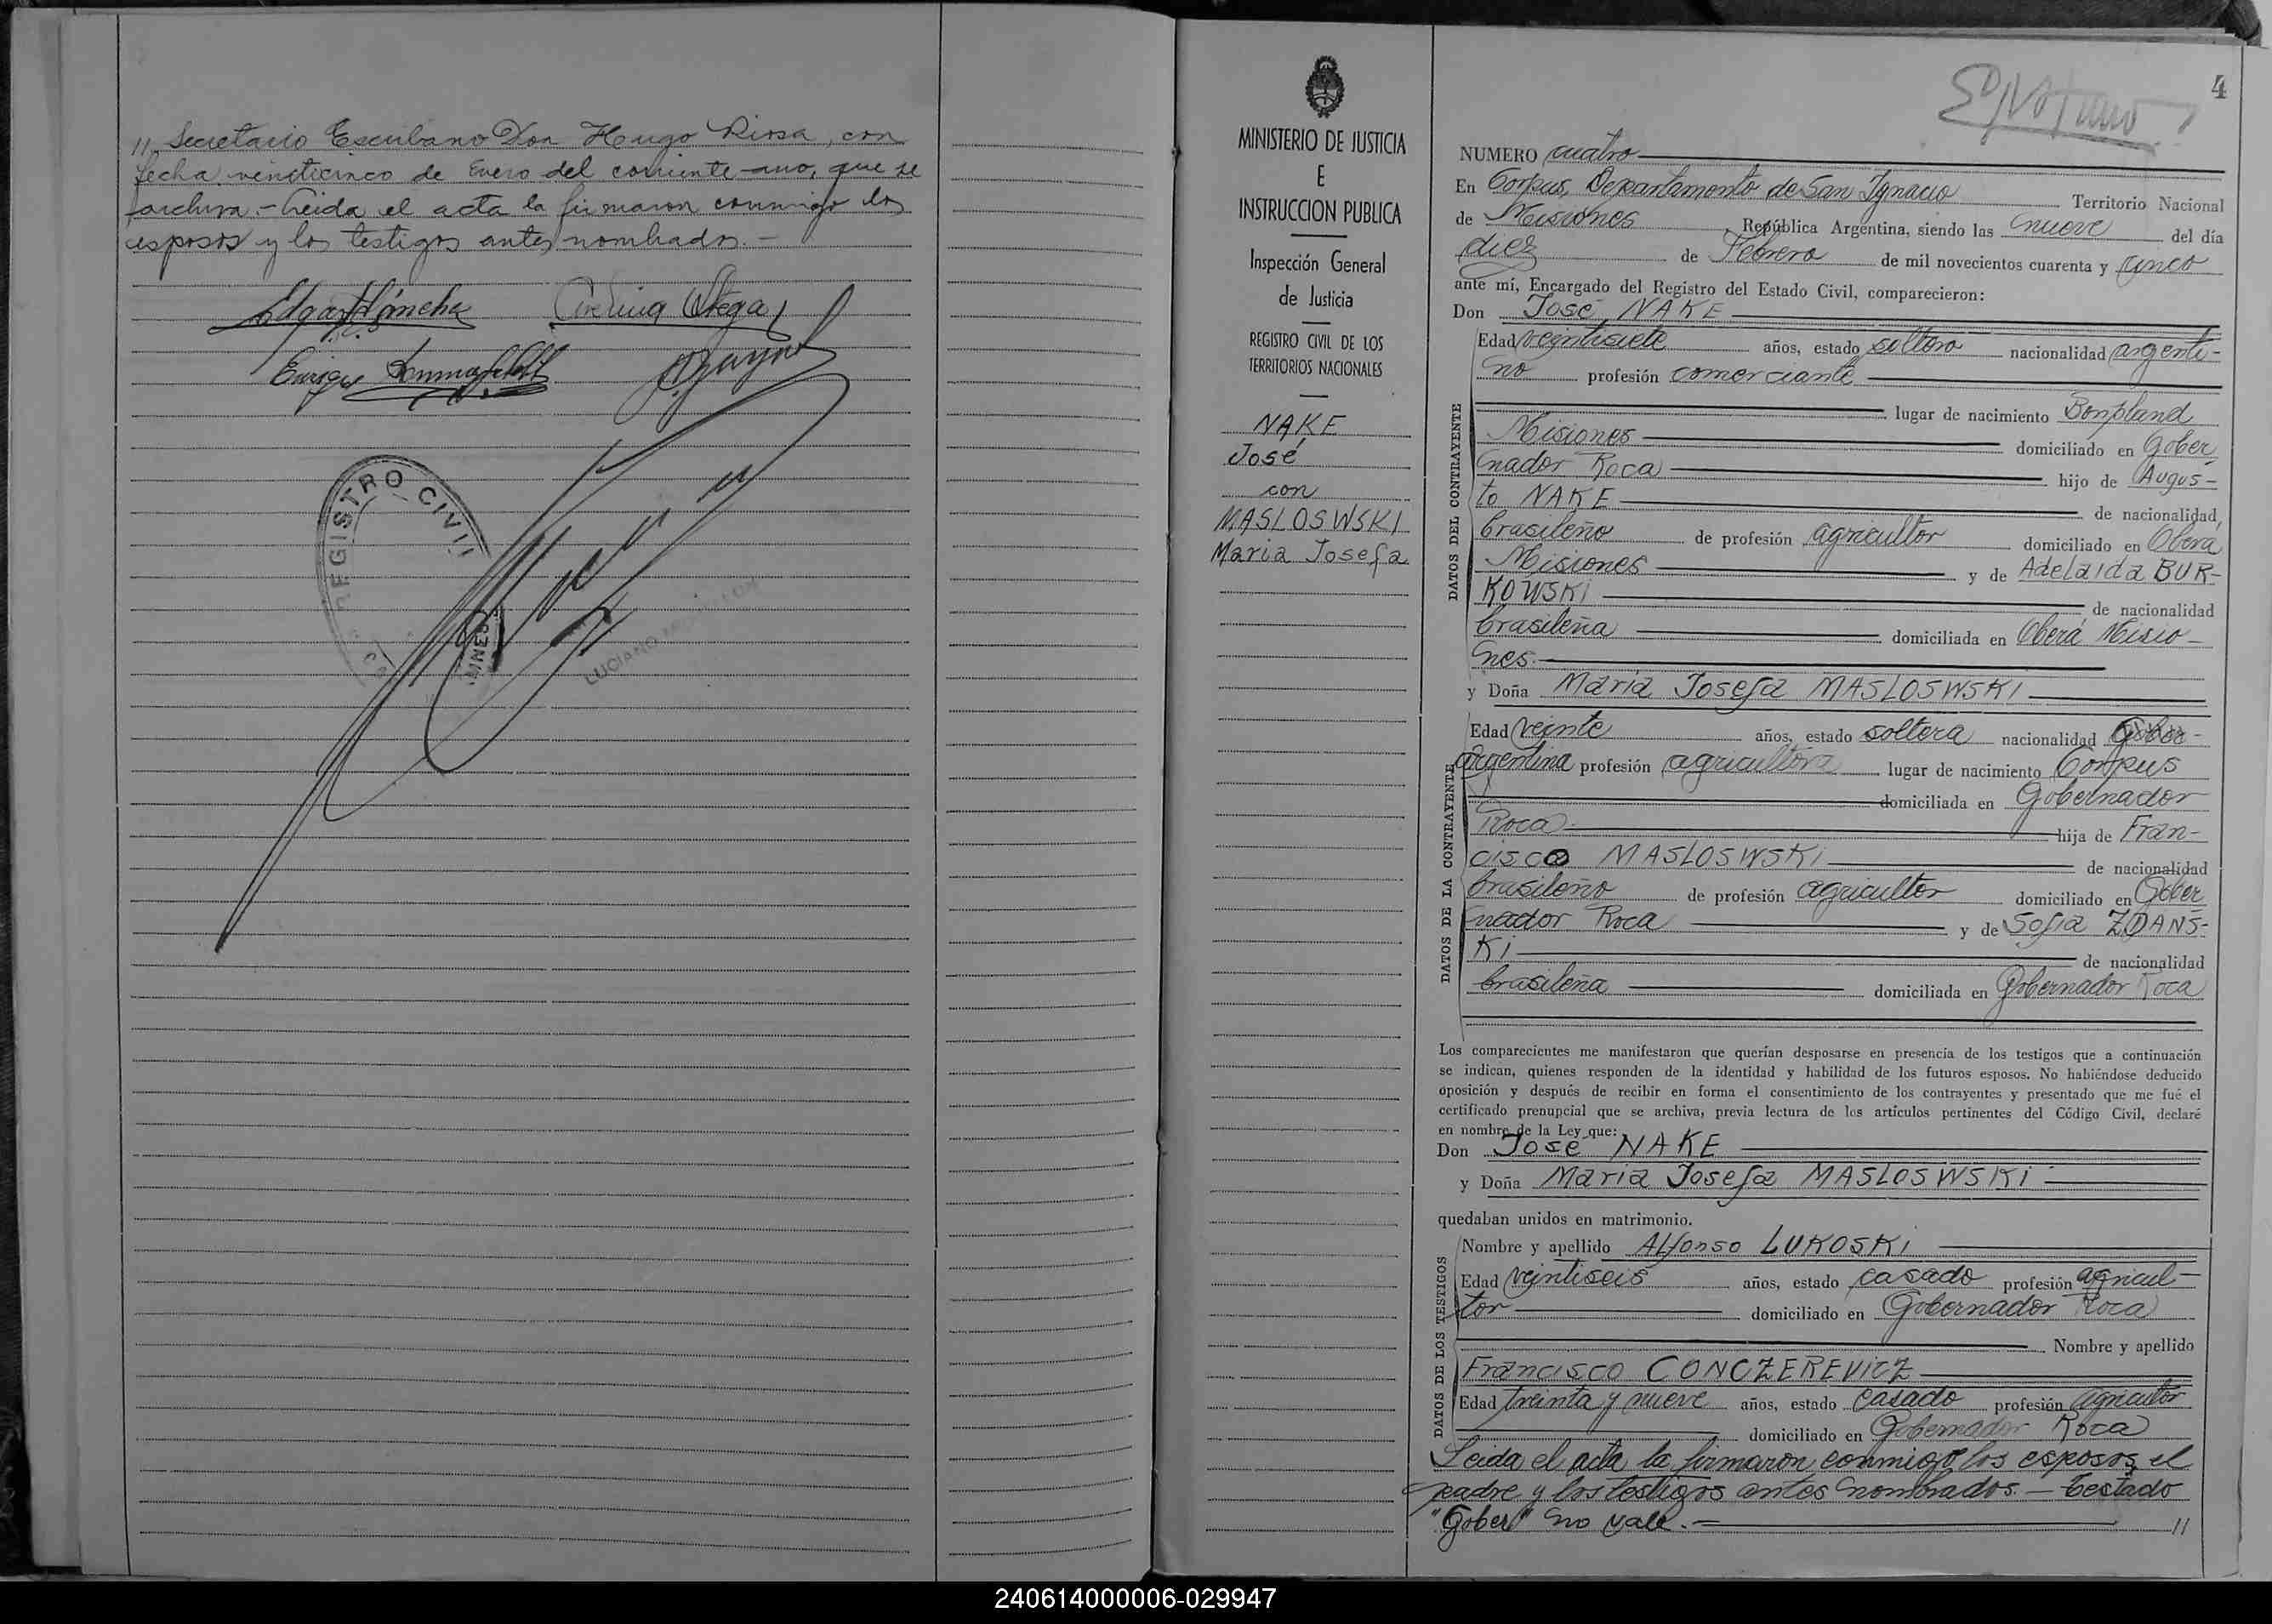 11 Secretario Escribano Don Hugo Rossa, con
fecha veinticinco de Enero del corriente año, que se
archiva.- Leida el acta la firmaron conmigo los
esposos y los testigos antes nombrados.-
Enrique
REGISTRO CIVIL
LUCIANO
MINISTERIO DE JUSTICIA
E
INSTRUCCION PUBLICA
Inspección General
de Justicia
REGISTRO CIVIL DE LOS
TERRITORIOS NACIONALES
NAKE
José
con
MASLOSWSKI
Maria Josefa
4
NUMERO cuatro
En Corpus, Departamento de San Ignacio Territorio Nacional
de Misiones República Argentina, siendo las nueve del día
diez de Febrero de mil novecientos cuarenta y cinco
ante mi, Encargado del Registro del Estado Civil, comparecieron:
Don José NAKE
DATOS DEL CONTRAYENTE
Edad veintisiete años, estado soltero nacionalidad argenti-
no profesión comerciante
lugar de nacimiento Bonpland
Misiones domiciliado en Gober
nador Roca hijo de Augus-
to NAKE de nacionalidad,
brasileño de profesión agricultor domiciliado en Oberá
Misiones y de Adelaida BUR-
KOWSKI de nacionalidad
brasileña domiciliada en Oberá Misio-
nes.
y Doña Maria Josefa MASLOSWSKI
DATOS DE LA CONTRAYENTE
Edad veinte años, estado soltera nacionalidad Gober-
argentina profesión agricultora lugar de nacimiento Corpus
domiciliada en Gobernador
Roca hija de Fran-
cisco MASLOSWSKI de nacionalidad
brasileño de profesión agricultor domiciliado en Gober
nador Roca y de Sofia ZDANS-
KI de nacionalidad
brasileña domiciliada en Gobernador Roca
Los comparecientes me manifestaron que querían desposarse en presencia de los testigos que a continuación
se indican, quienes responden de la identidad y habilidad de los futuros esposos. No habiéndose deducido
oposición y después de recibir en forma el consentimiento de los contrayentes y presentado que me fué el
certificado prenupcial que se archiva, previa lectura de los artículos pertinentes del Código Civil, declaré
en nombre de la Ley que:
Don José NAKE
y Doña Maria Josefa MASLOSWSKI
quedaban unidos en matrimonio.
DATOS DE LOS TESTIGOS
Nombre y apellido Alfonso LUKOSKI
Edad veintiseis años, estado casado profesión agricul-
tor domiciliado en Gobernador Roca
Nombre y apellido
Francisco CONCZEREVICZ
Edad treinta y nueve años, estado casado profesión agricultor
domiciliado en Gobernador Roca
Leida el acta la firmaron conmigo los esposos, el
padre y los testigos antes nombrados.- Testado
"Gober" no vale.- //
240614000006-029947